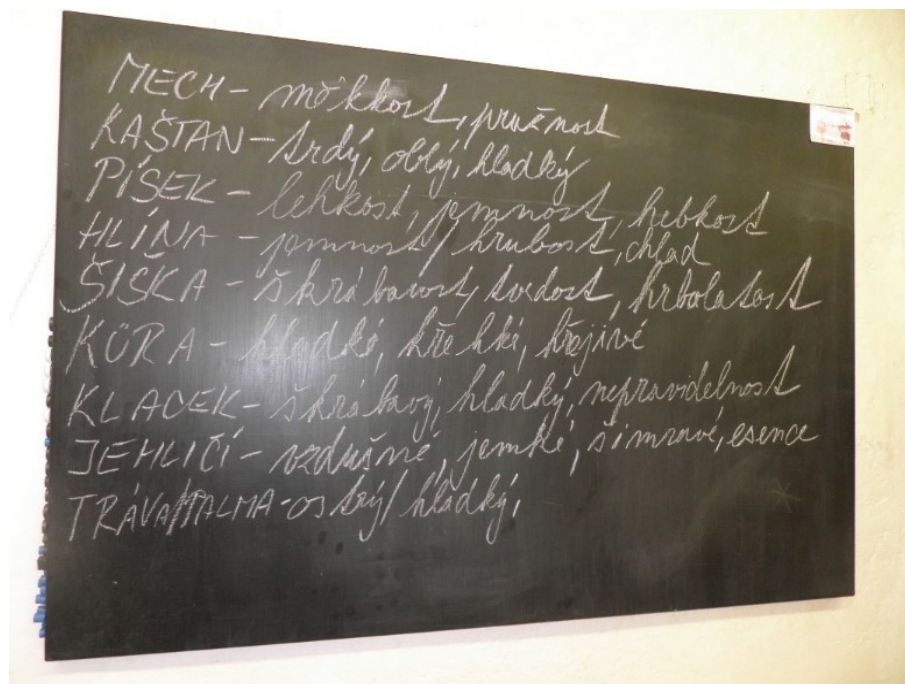 MECH - měkkost, pružnost
KAŠTAN - tvrdý, oblý, hladký
PÍSEK - lehkost, jemnost, hebkost
HLÍNA - jemnost/hrubost, chlad
ŠIŠKA - škrábavost, tvrdost, hrbolatost
KŮRA - hladké, křehké, hřejivé
KLACEK - škrábavý, hladký, nepravidelnost
JEHLIČÍ - vzdušné, jemké, šimravé, esence
TRÁVA/PALMA - ostrý/hladký,